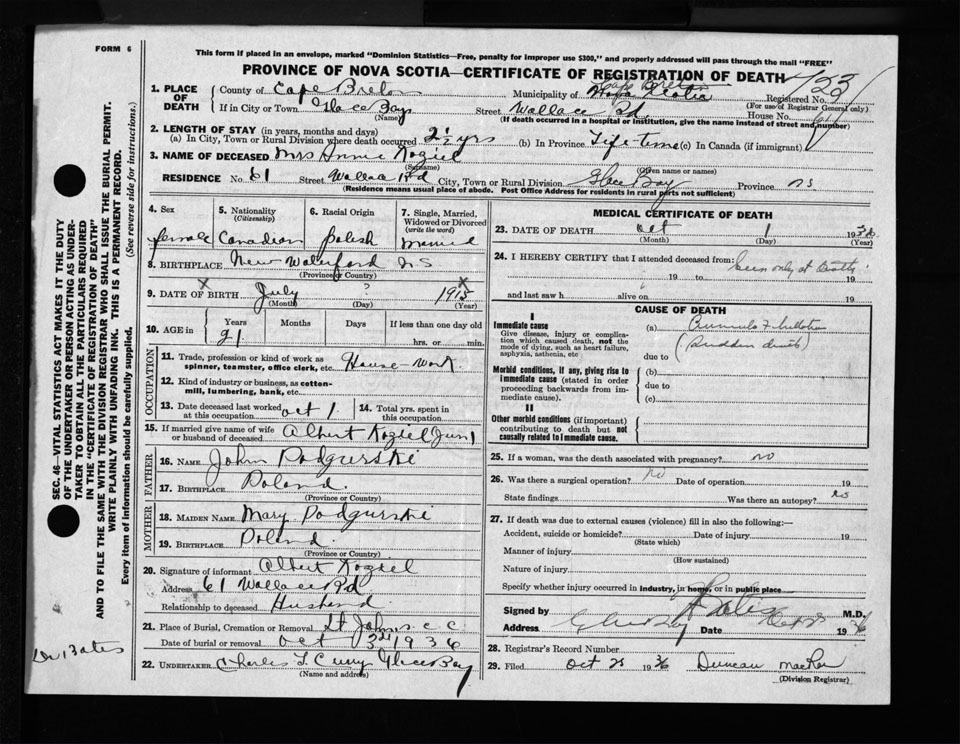 FORM 6
This form if placed in an envelope, marked "Dominion Statistics—Free, penalty for improper use $300," and properly addressed will pass through the mail "FREE"
PROVINCE OF NOVA SCOTIA—CERTIFICATE OF REGISTRATION OF DEATH
1. PLACE OF DEATH
County of Cape Breton Municipality of Cape Breton Nova Scotia Registered No.
(For use of Registrar General only)
If in City or Town Glace Bay Street Wallace Rd. House No. 61
(Name) (If death occurred in a hospital or institution, give the name instead of street and number)
2. LENGTH OF STAY (in years, months and days)
(a) In City, Town or Rural Division where death occurred 2½ yrs (b) In Province Life-time (c) In Canada (if immigrant)
3. NAME OF DECEASED Mrs Annie Koziel
(Surname) (Given name or names)
RESIDENCE No. 61 Street Wallace Rd City, Town or Rural Division Glace Bay Province NS
(Residence means usual place of abode. Post Office Address for residents in rural parts not sufficient)
4. Sex female
5. Nationality (Citizenship) Canadian
6. Racial Origin Polish
7. Single, Married, Widowed or Divorced (write the word) Married
8. BIRTHPLACE New Waterford N S
(Province or Country)
9. DATE OF BIRTH July ? 1915
(Month) (Day) (Year)
10. AGE in Years 21 Months Days If less than one day old
hrs. or min.
OCCUPATION
11. Trade, profession or kind of work as spinner, teamster, office clerk, etc. House-work
12. Kind of industry or business, as cotton-mill, lumbering, bank, etc.
13. Date deceased last worked at this occupation Oct 1 14. Total yrs. spent in this occupation
15. If married give name of wife or husband of deceased Albert Koziel
FATHER
16. NAME John Podgurski
17. BIRTHPLACE Poland
(Province or Country)
MOTHER
18. MAIDEN NAME Mary Podgurski
19. BIRTHPLACE Poland
(Province or Country)
20. Signature of informant Albert Koziel
Address 61 Wallace Rd
Relationship to deceased Husband
21. Place of Burial, Cremation or Removal St Johns c c
Date of burial or removal Oct 3rd 1936
22. UNDERTAKER Charles L Curry Glace Bay
(Name and address)
MEDICAL CERTIFICATE OF DEATH
23. DATE OF DEATH Oct 1 1936
(Month) (Day) (Year)
24. I HEREBY CERTIFY that I attended deceased from: seen only at death
19 to 19
and last saw h alive on 19
CAUSE OF DEATH
I
Immediate cause
Give disease, injury or complication which caused death, not the mode of dying, such as heart failure, asphyxia, asthenia, etc
(a)
(Sudden death)
due to
Morbid conditions, if any, giving rise to immediate cause (stated in order proceeding backwards from immediate cause).
(b)
due to
(c)
II
Other morbid conditions (if important) contributing to death but not causally related to immediate cause.
25. If a woman, was the death associated with pregnancy? no
26. Was there a surgical operation? no Date of operation 19
State findings Was there an autopsy? no
27. If death was due to external causes (violence) fill in also the following:—
Accident, suicide or homicide? Date of injury 19
(State which)
Manner of injury
(How sustained)
Nature of injury
Specify whether injury occurred in industry, in home, or in public place
Signed by Bates M.D.
Address Glace Bay Date Oct 1936
28. Registrar's Record Number
29. Filed Oct 25 1936 Duncan MacRae
(Division Registrar)
SEC. 46—VITAL STATISTICS ACT MAKES IT THE DUTY OF THE UNDERTAKER OR PERSON ACTING AS UNDERTAKER TO OBTAIN ALL THE PARTICULARS REQUIRED IN THE "CERTIFICATE OF REGISTRATION OF DEATH"
AND TO FILE THE SAME WITH THE DIVISION REGISTRAR WHO SHALL ISSUE THE BURIAL PERMIT.
WRITE PLAINLY WITH UNFADING INK. THIS IS A PERMANENT RECORD.
Every item of information should be carefully supplied. (See reverse side for instructions.)
Dr. Bates